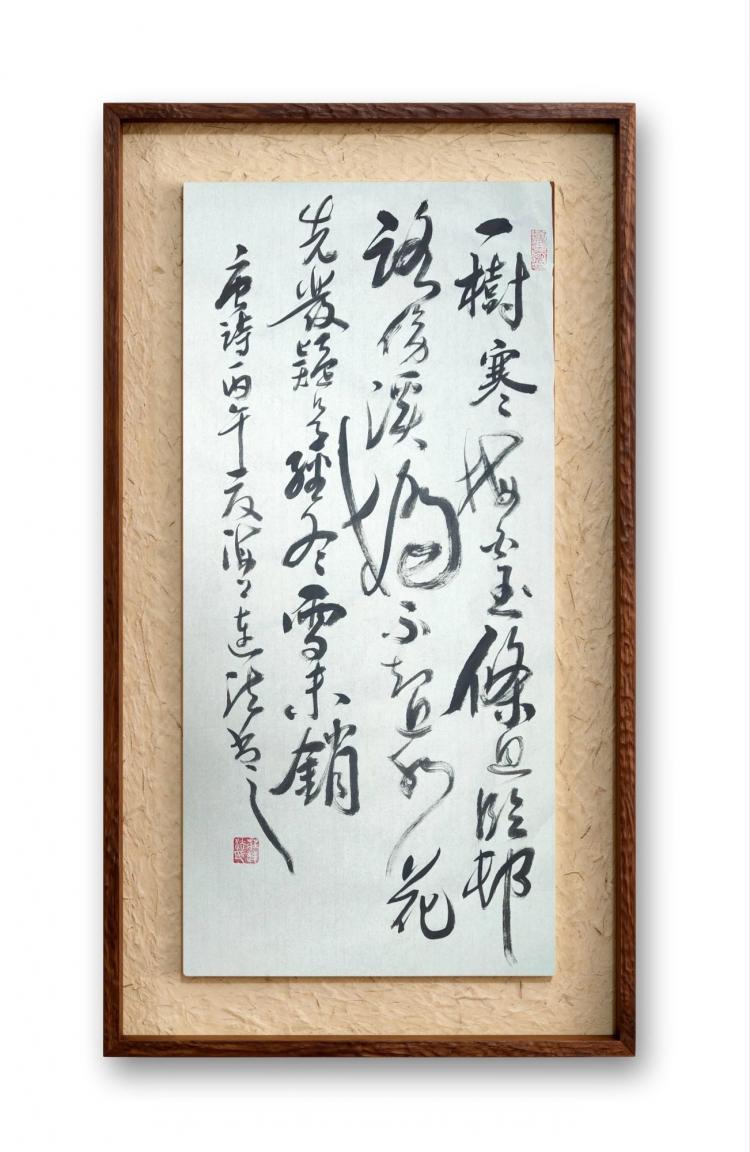 一樹寒梅白玉條迥臨邨
路傍溪橋不知近水花
先發疑是經冬雪未銷
唐詩丙午海上連法書之